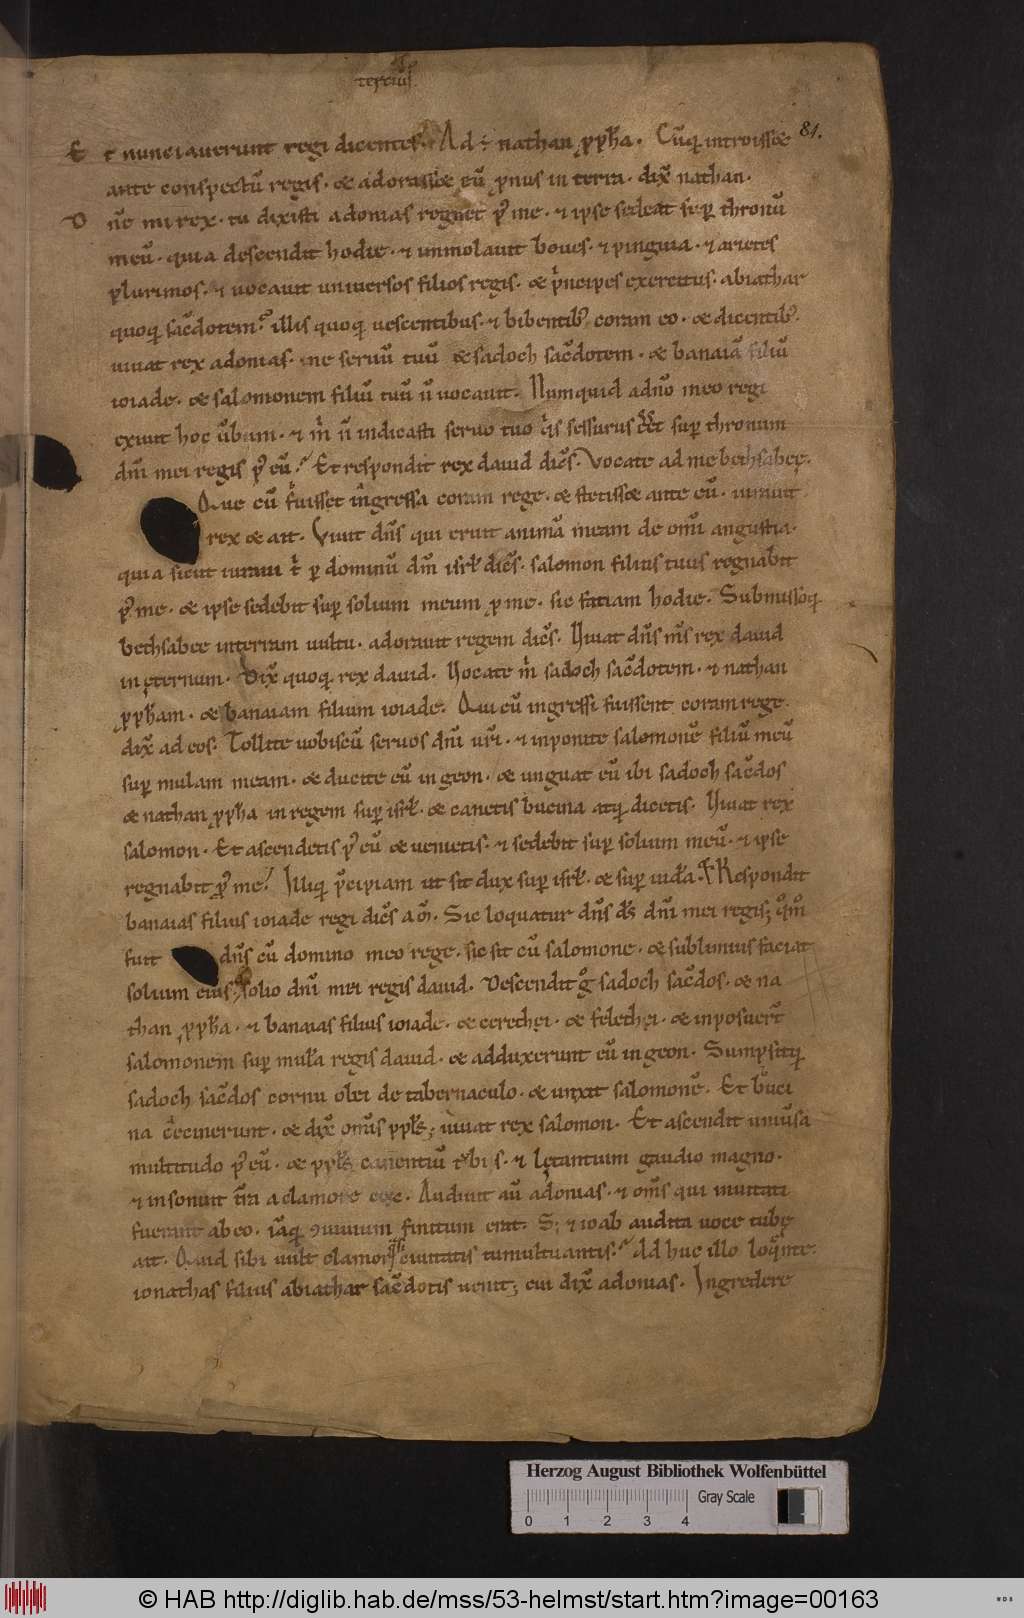 tercius
81.
Et nunciauerunt regi dicentes. Ad ÷ nathan ꝓpħa. Cūq; introissꝫ
ante conspectū regis. & adorassꝫ eū ꝓnus in terra. dix̄ nathan.
Dn̄e mi rex. tu dixisti adonias regnet p̄ me. & ipse sedeat suꝑ thronū
meū. quia descendit hodie. & immolauit boues. & pinguia. & arietes
plurimos. & uocauit uniuersos filios regis. & p̄ncipes exercitus. abiathar
quoq; sac̄dotem. illis quoq; uescentibus. & bibentib; coram eo. & dicentib;
uiuat rex adonias. me seruū tuū & sadoch sac̄dotem. & banaiā filiū
ioiade. & salomonem filiū tuū n̄ uocauit. Numquid a dn̄o meo rege
exiuit hoc ūbum. & m̄ n̄ indicasti seruo tuo q̄s sessurus eēt suꝑ thronum
dn̄i mei regis p̄ eū. Et respondit rex dauid dic̄s. Vocate ad me bethsabeę.
Que cū fuisset ingressa coram rege. & stetissꝫ ante eū. iurauit
rex & ait. Viuit dn̄s qui eruit animā meam de om̄i angustia.
quia sicut iuraui t̄ ꝑ dominū dm̄ isrł dic̄s. salomon filius tuus regnabit
p̄ me. & ipse sedebit suꝑ solium meum ꝓ me. sic faciam hodie. Submissoq;
bethsabee in terram uultu. adorauit regem dic̄s. Viuat dn̄s m̄s rex dauid
in ęternum. Dix̄ quoq; rex dauid. Vocate m̄ sadoch sac̄dotem. & nathan
ꝓpħam. & banaiam filium ioiade. Qui cū ingressi fuissent coram rege.
dix̄ ad eos. Tollite uobiscū seruos dn̄i ur̄i. & inponite salomonē filiū meū
suꝑ mulam meam. & ducite eū in geon. & unguat eū ibi sadoch sac̄dos
& nathan ꝓpħa in regem suꝑ isrł. & canetis bucina atq; dicetis. Viuat rex
salomon. Et ascendetis p̄ eū & uenietis. & sedebit suꝑ solium meū. & ipse
regnabit p̄ me. Illiq; p̄cipiam ut sit dux suꝑ isrł. & suꝑ iudā. Respondit
banaias filius ioiade regi dic̄s am̄. Sic loquatur dn̄s ds̄ dn̄i mei regis; qm̄o
fuit dn̄s cū domino meo rege. sic sit cū salomone. & sublimius faciat
solium eius solio dn̄i mei regis dauid. Descendit g̊ sadoch sac̄dos. & na
than ꝓpħa. & banaias filius ioiade. & cerethęi. & felethęi. & inposuer̄t
salomonem suꝑ mulā regis dauid. & adduxerunt eū in geon. Sumpsitq;
sadoch sac̄dos cornu olei de tabernaculo. & unxit salomonē. Et buci
na cecinerunt. & dix̄ om̄s ppłs; uiuat rex salomon. Et ascendit uniūsa
multitudo p̄ eū. & ppłs canentiū tibiis. & lętantium gaudio magno.
& insonuit tr̄a a clamore eoꝝ. Audiuit aū adonias. & om̄s qui inuitati
fuerant ab eo. iāq; ꝯuiuium finitum erat. S; & ioab audita uoce tubę
ait. Quid sibi uult clamor ciuitatis tumultuantis. Ad huc illo loq̄nte.
ionathas filius abiathar sac̄dotis uenit; cui dix̄ adonias. Ingredere
Herzog August Bibliothek Wolfenbüttel
Gray Scale
0 1 2 3 4
© HAB http://diglib.hab.de/mss/53-helmst/start.htm?image=00163